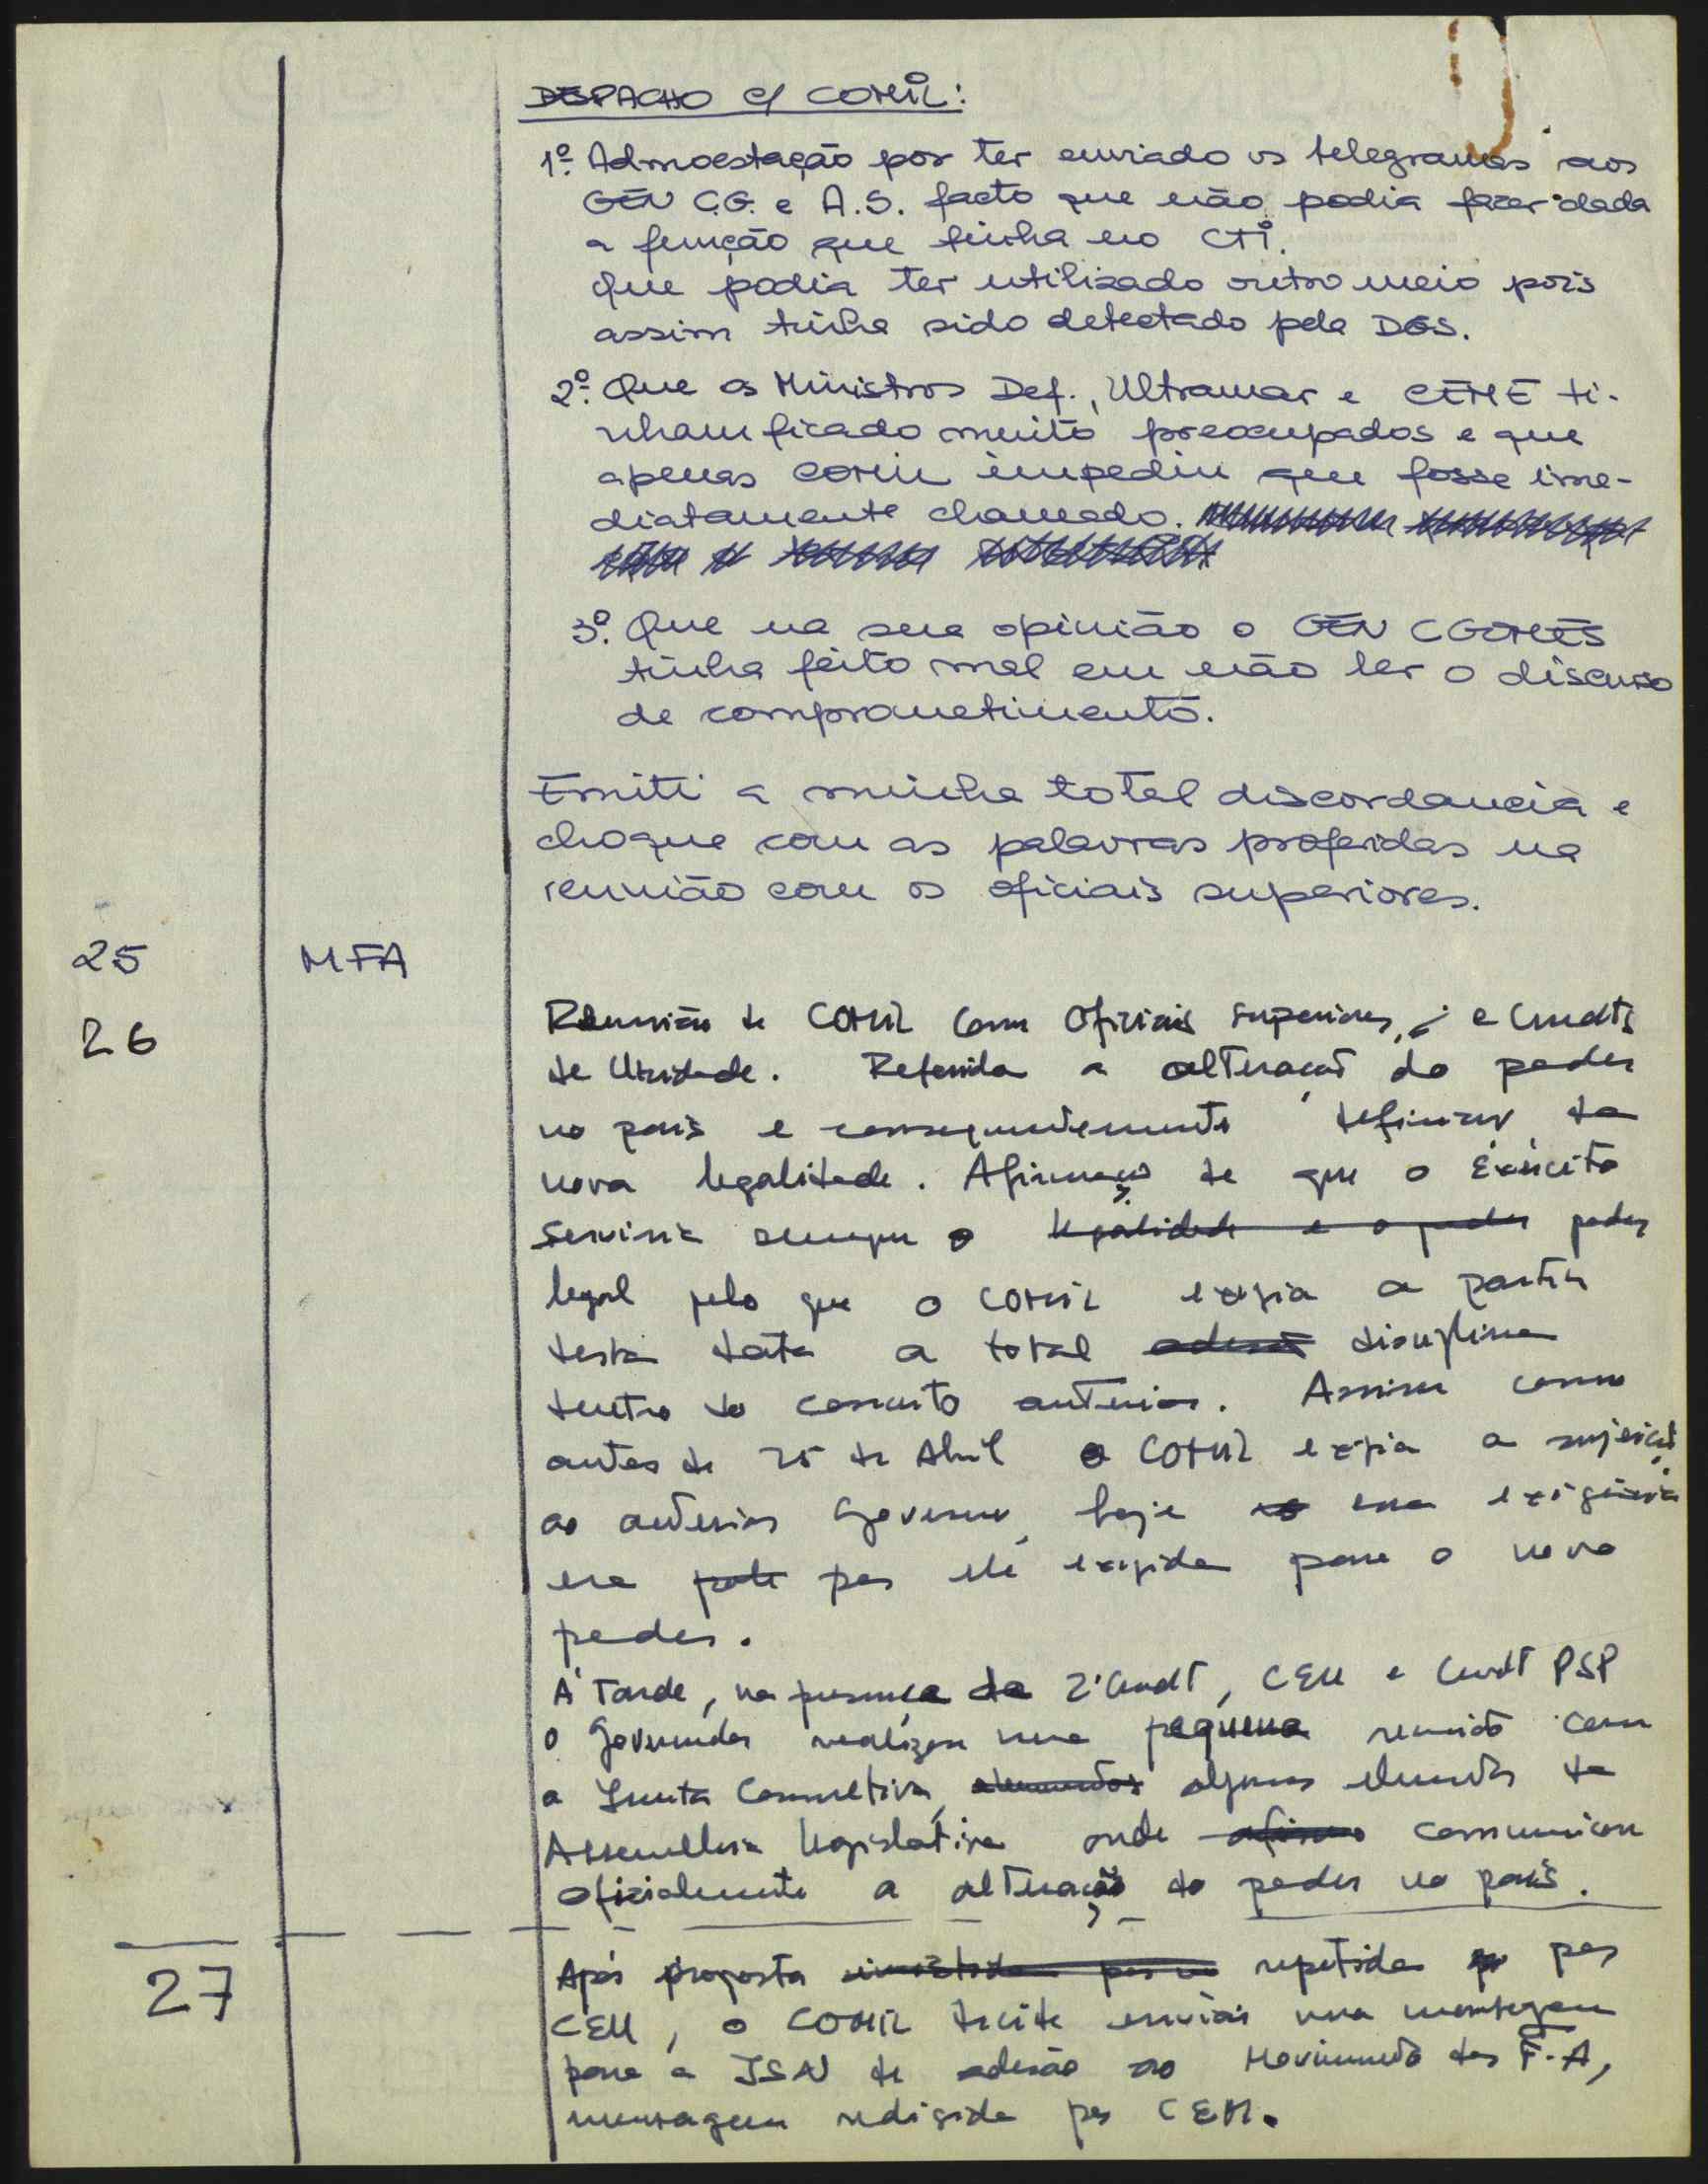 DESPACHO c/ COMIL:
1º. Admoestação por ter enviado os telegramas aos
GEN C.G. e A.S. facto que não podia fazer dada
a função que tinha no CTI.
Que podia ter utilizado outro meio pois
assim tinha sido detectado pela DGS.
2º. Que os Ministros Def., Ultramar e CEME ti-
nham ficado muito preocupados e que
apenas COMIL impediu que fosse ime-
diatamente chamado.
3º. Que na sua opinião o GEN CGOMES
tinha feito mal em não ler o discurso
de comprometimento.
Emiti a minha total discordancia e
choque com as palavras proferidas na
reunião com os oficiais superiores.
25 MFA
26 Reunião de COMIL com Oficiais Superiores, e Cmdts
de Unidade. Referida a alteração do poder
no país e consequentemente definição da
nova legalidade. Afirmação de que o Exército
serviria sempre o legalidade e o poder poder
legal pelo que o COMIL exigia a partir
desta data a total adesão disciplina
dentro do conceito anterior. Assim como
antes de 25 de Abril o COMIL exigia a sujeição
ao anterior Governo, hoje essa exigência
era por ele exigida para o novo
poder.
À Tarde, na presença de 2º Cmdt, CEM e Cmdt PSP
o Governador realizou uma pequena reunião com
a Junta Consultiva, elementos alguns elementos da
Assembleia Legislativa onde afirmou comunicou
oficialmente a alteração do poder no país.
27 Após proposta repetida por
CEM, o COMIL decide enviar uma mensagem
para a JSN de adesão ao Movimento das F.A,
mensagem redigida por CEM.